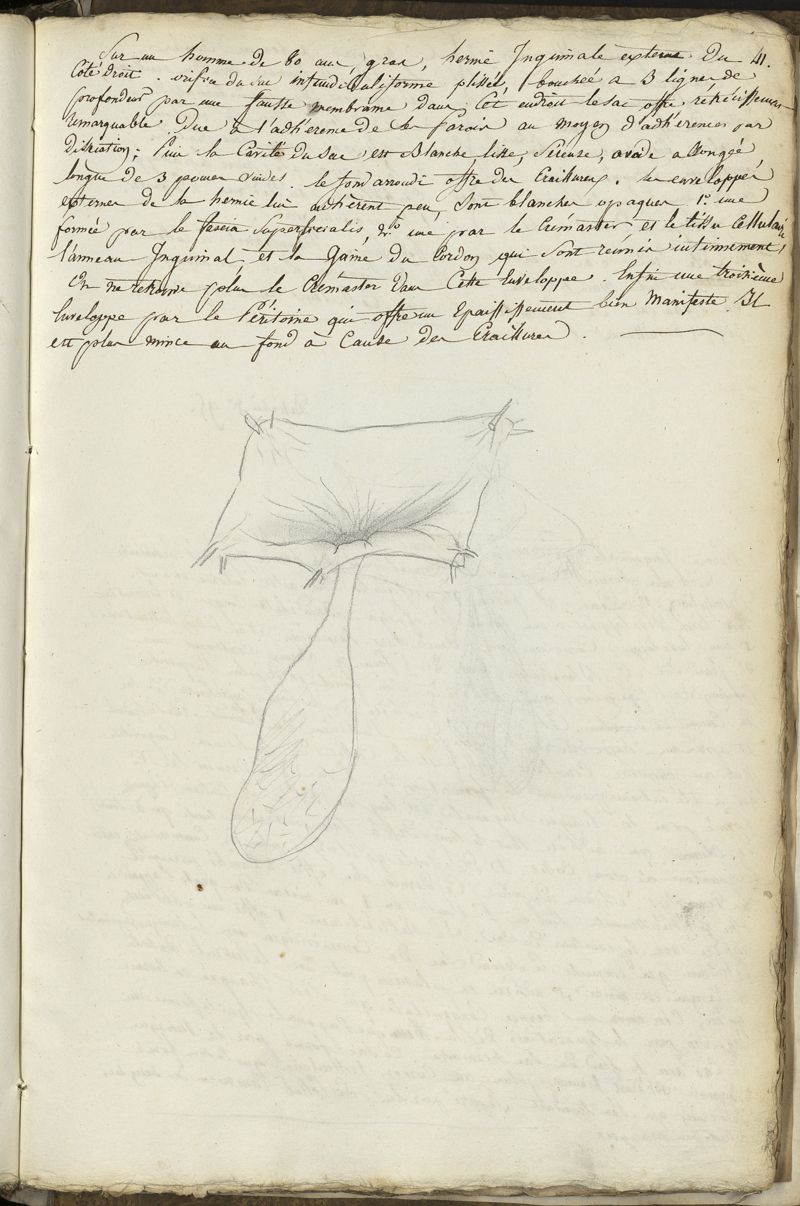 41.
Sur un homme de 80 ans, gras, hernie Inguinale externe Du
Coté Droit. orifice du sac infundibuliforme plissée, bouchée a 3 lignes de
profondeur par une fausse membrane dans Cet endroit le sac offre retrécissement
remarquable Due à l'adhérence de ses parois au moyen d'adhérences par
; puis la Cavité Du Sac est Blanche, lisse, Séreuse, ovoide allongée,
longue de 3 pouces vides. le fond arrondi offre des Eraillures. les enveloppes
externes de la hernie lui adhèrent peu, Sont blanches opaques 1.° une
formée par le fascia Superficialis, 2.° une par le Crémaster et le tissu Cellulaire
l'anneau Inguinal et la Gaine du Cordon qui Sont reunis intimement,
On ne retrouve plus le Crémaster Dans Cette Enveloppe. Enfin une troisième
Enveloppe par le Péritoine qui offre un Epaississement bien Manifeste. Il
est plus mince au fond à Cause des Eraillures.